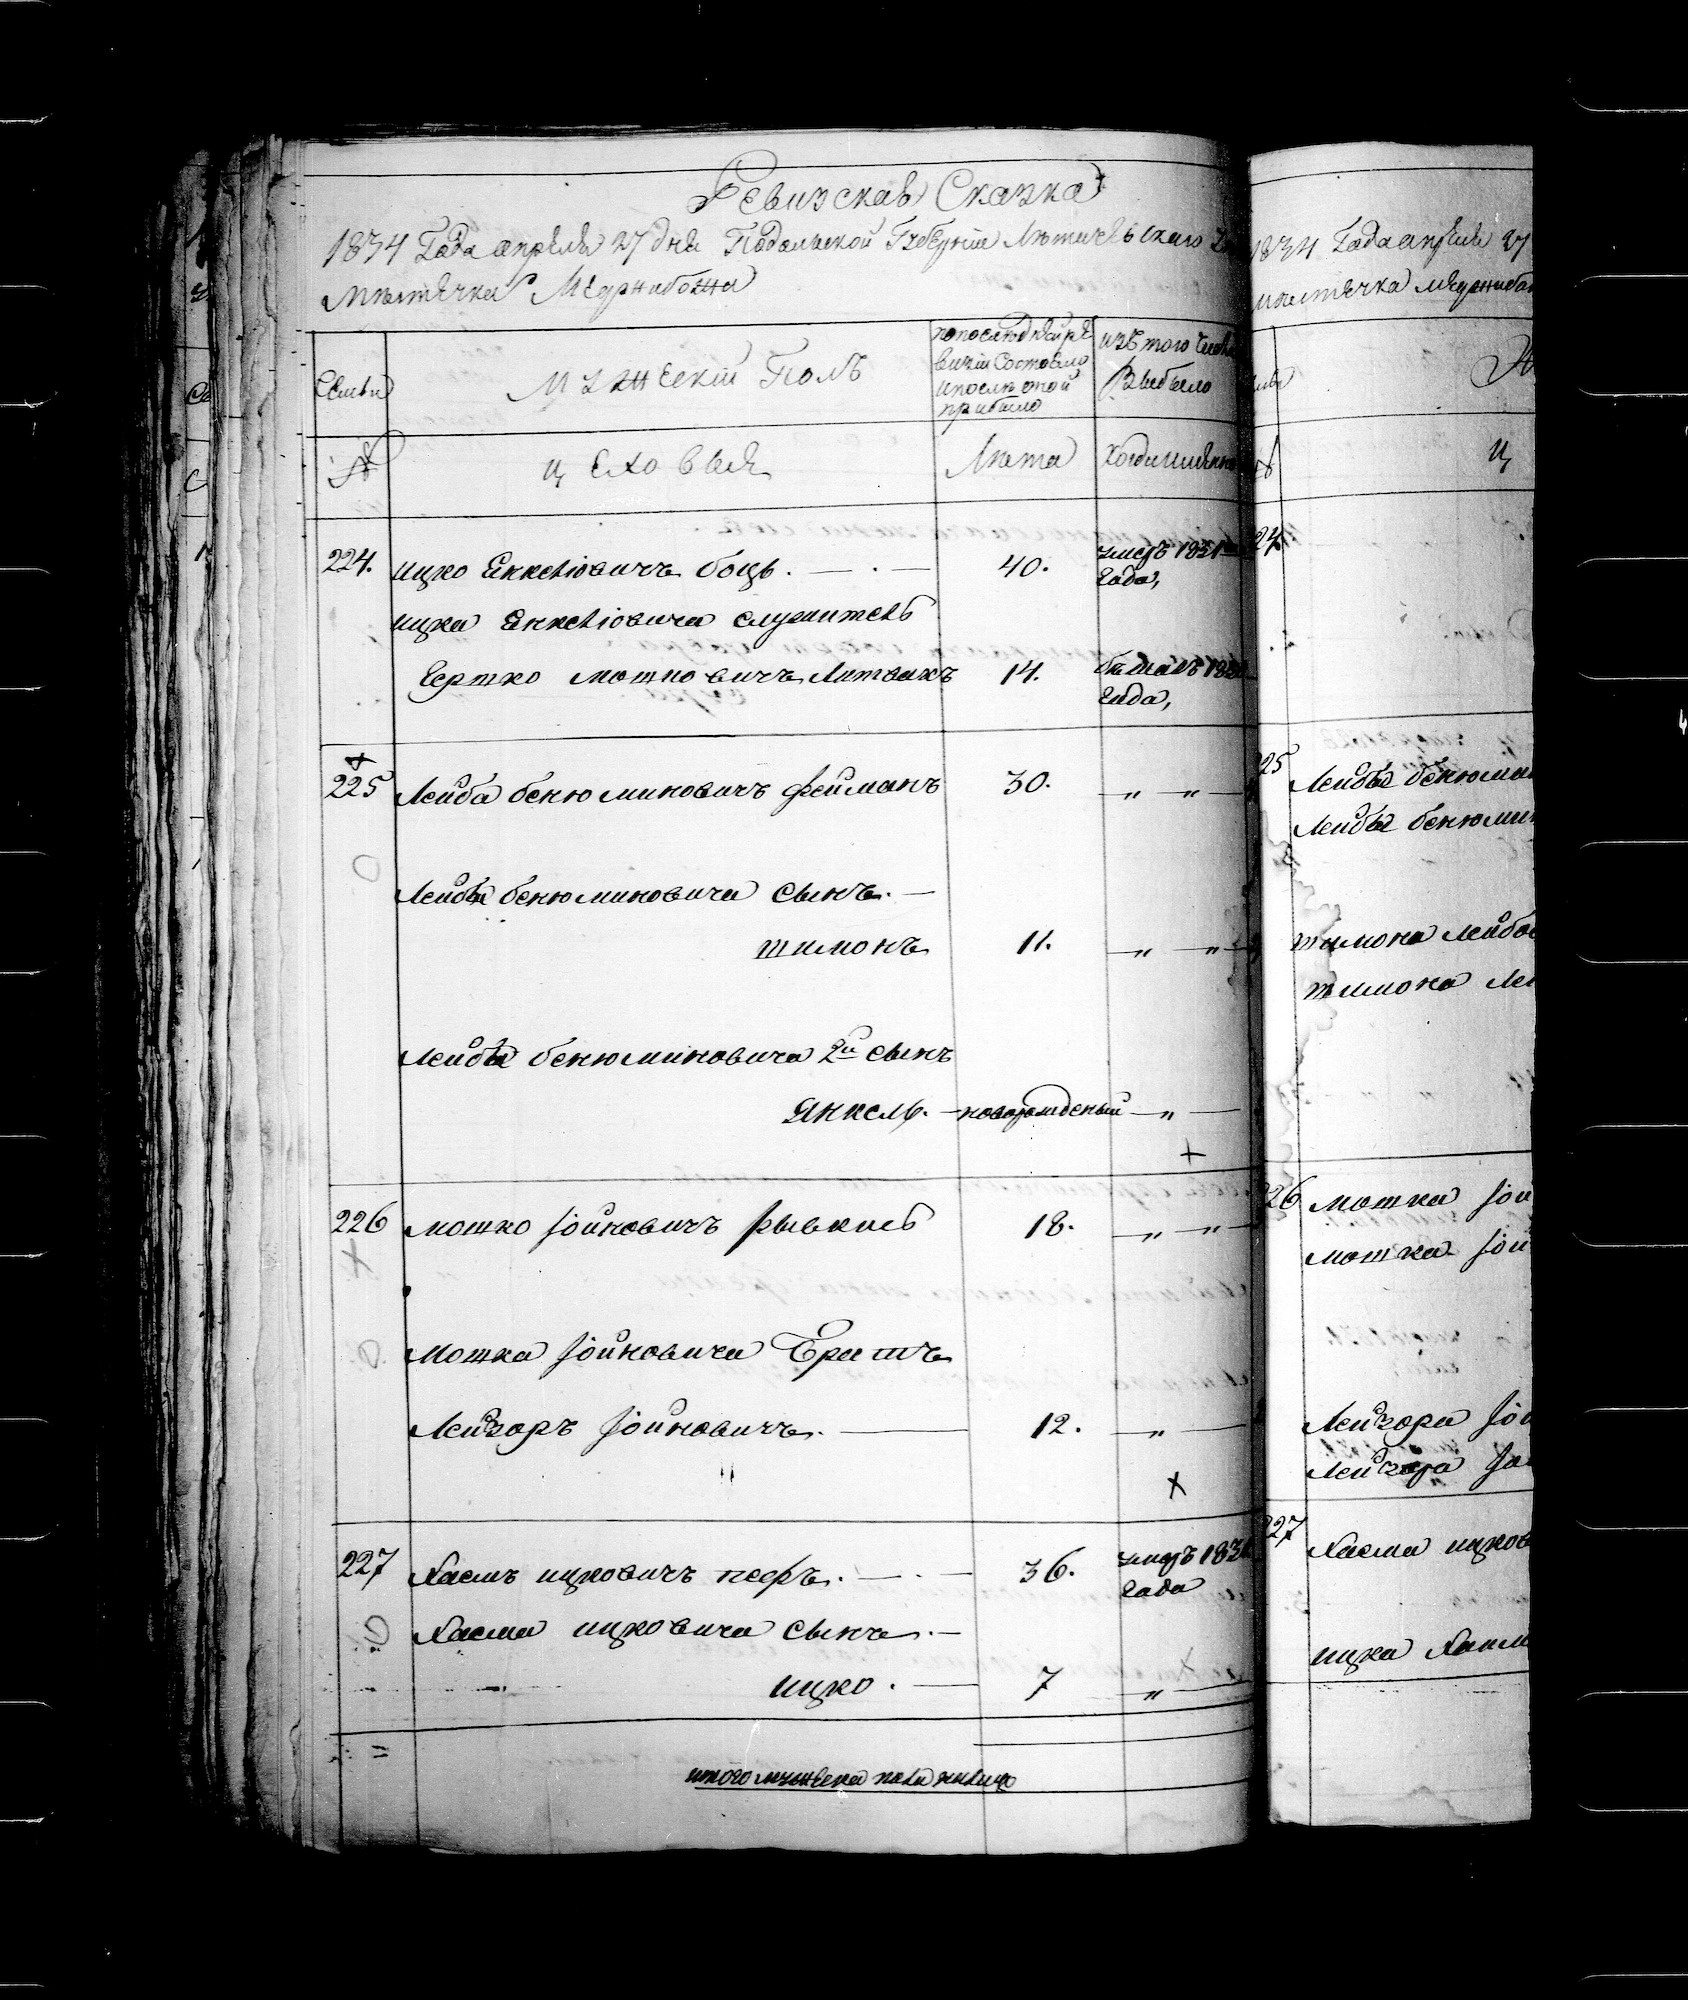 Ревизская Сказка
1834 Года апреля 27 дня Подольской Губернии Летичевьскаго
Местечка Меджибожа
Семьи
Мужеский Полъ
попоследней ре
визии Состояло
и после оной
прибыло
изъ того числа
Выбыло
№
цеховыя
Лета
Когда именно
224.
ицко Янкелiовичъ боцъ. — . —
40.
умеръ 1831
Года,
ицка Янкелiовича служитель
Гертко Мошковичъ Литвакъ
14.
бежалъ 18
Года,
225
Лейба бенюминовичъ фейманъ
30.
„ „
Лейбы бенюминовича сынъ. —
шимонъ
11.
„ „
Лейбы бенюминовича 2й сынъ
Янкель. — новорожденый — „ —
+
226
Мошко Iойновичъ рывкись
18.
„ „
х
Мошка Iойновича Братъ
Лейзоръ Iойновичъ. —
12.
„
х
227
Хаемъ ицковичъ песфъ. — . —
36.
умеръ 183
Года
Хаема ицковича сынъ. —
ицко. —
7
„
итого мужеска пола налицо
1834 Года апреля 27
местечка меджибо
№
ц
24
25
Лейбы бенюми
Лейбы бенюми
шимона лейбо
шимона ле
26
мошка Iой
мошка Iой
Лейзора Iо
Лейзора Iо
27
Хаема ицков
ицка Хаим